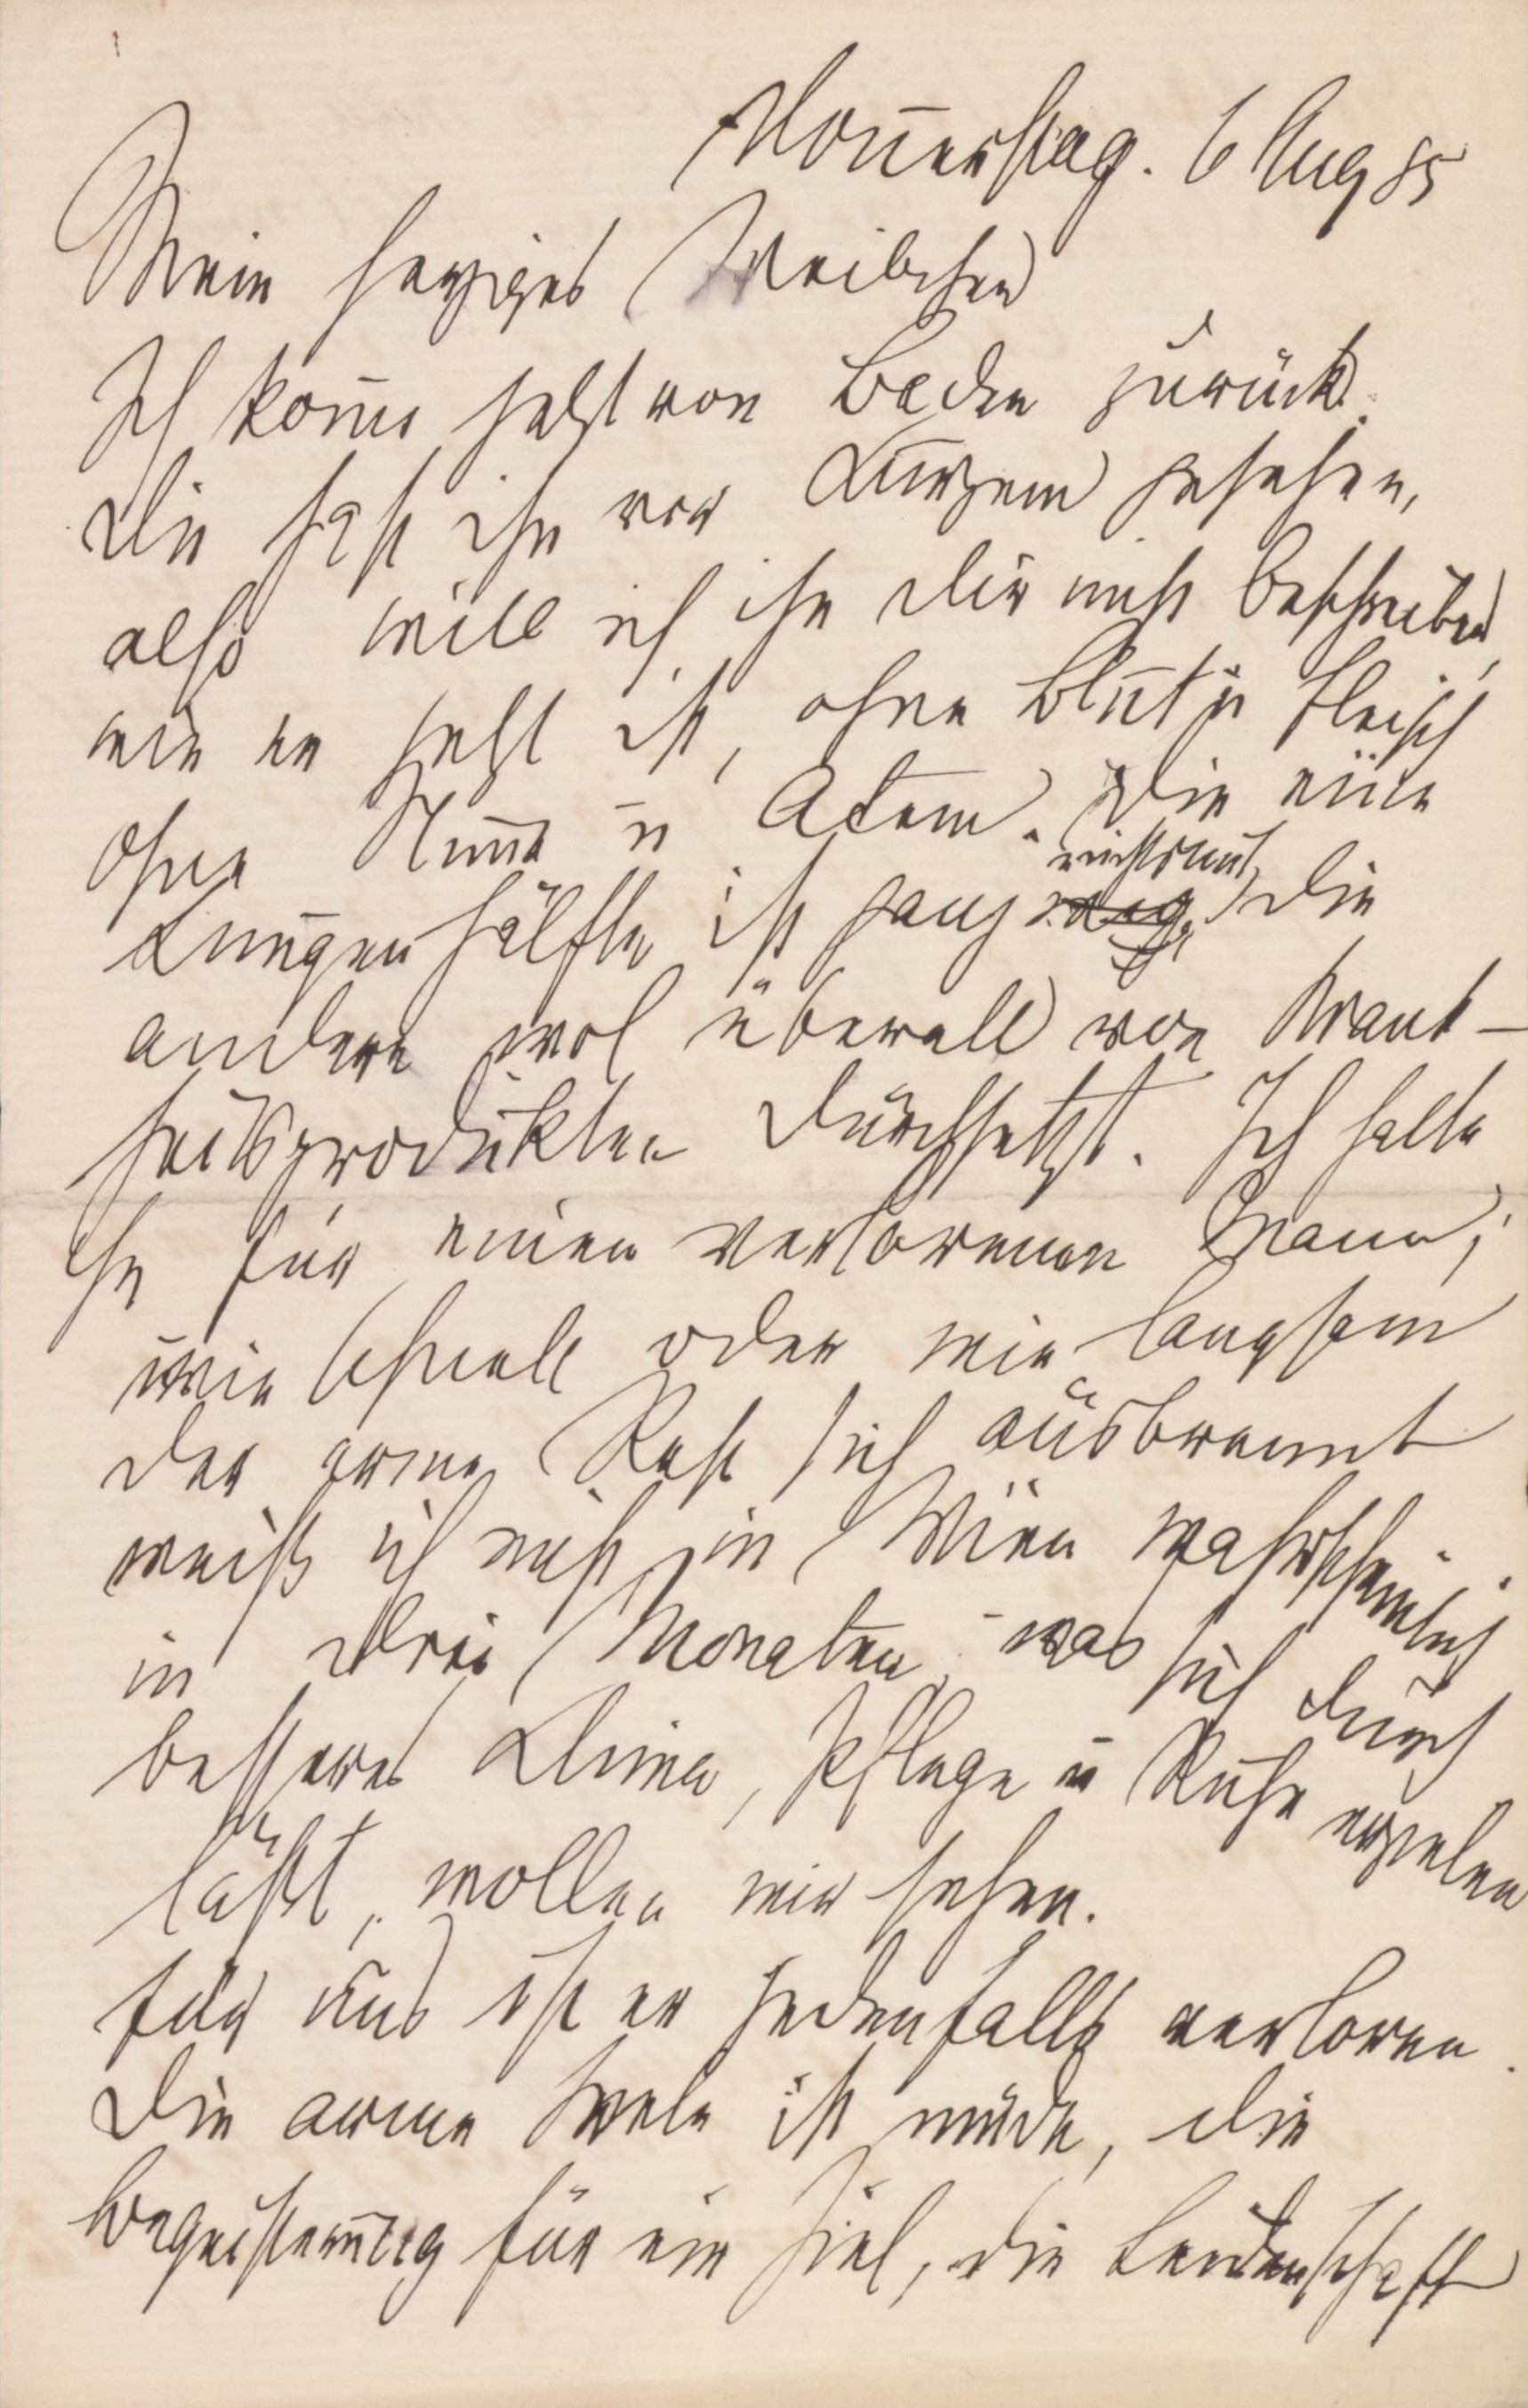 Donnerstag. 6 Aug 85
Mein herziges Weibchen
Ich kom̄e jetzt von Baden zurück.
Du hast ihn vor Kurzem gesehen,
also will ich ihn Dir nicht beschreiben,
wie er jetzt ist, ohne Blut u Fleisch
ohne Stim̄e u Atem. Die eine
Lungenhälfte ist ganz nichtsnutz, die
andere wol überall von Krank-
heitsprodukten durchsetzt. Ich halte
ihn für einen verlorenen Mann;
wie schnell oder wie langsam
der arme Rest sich ausbrennt
weiß ich nicht, in Wien wahrscheinlich
in drei Monaten, was sich durch
besseres Klima, Pflege u Ruhe erzielen
läßt, wollen wir sehen.
Für uns ist er jedenfalls verloren.
Die arme Seele ist müde, die
Begeisterung für ein Ziel, die Leidenschaft